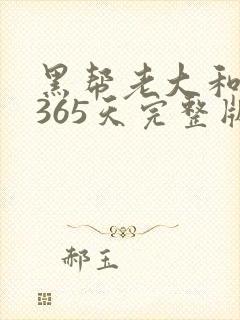 黑帮老大和
365天完整版
郝玉